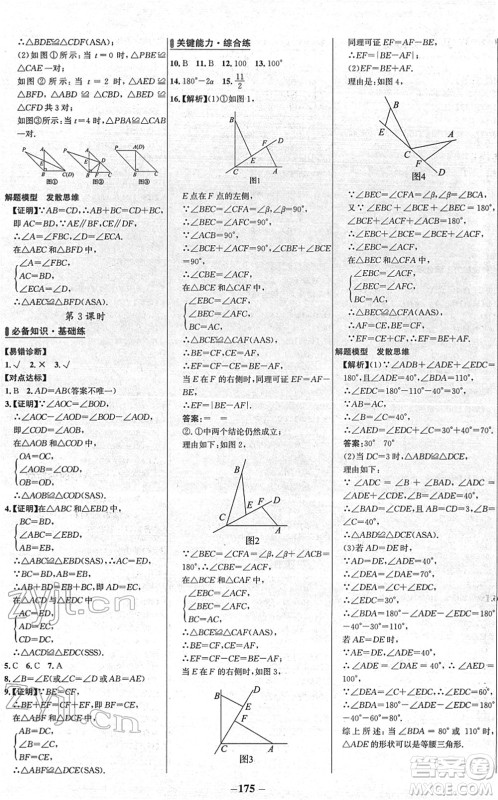 ∴△BDE≌△CDF(ASA).
(2)如图①所示,当t=0时,△PBA≌
△CAE一对.
如图②所示,当t=2时,△AED≌
△BFA,△ABD≌△CAF,△ABE≌△CAD三对.
如图③所示,当t=4时,△PBA≌△CAB一
对.
图① 图② 图③
解题模型 发散思维
【证明】∵AB=CD,∴AB+BC=CD+BC,
即AC=BD,∵AE∥BF,CE∥DF,
∴∠A=∠FBD,∠D=∠ECA.
在△AEC和△BFD中,
∠A=∠FBD,
AC=BD,
∠ECA=∠D,
∴△AEC≌△BFD(ASA).
第3课时
必备知识·基础练
【易错诊断】
1.√ 2.× 3.√
【对点达标】
1.B 2.AD=AB(答案不唯一)
3.【证明】∵∠AOC=∠BOD,
∴∠AOC-∠AOD=∠BOD-∠AOD,
即∠COD=∠AOB.
在△AOB和△COD中,
OA=OC,
∠AOB=∠COD,
OB=OD,
∴△AOB≌△COD(SAS).
4.【证明】在△ABC与△EBD中,
BC=BD,
∠ABC=∠EBD,
AB=EB,
∴△ABC≌△EBD(SAS),∴AC=ED,
∵AB=BE,BC=BD,∴AD=CE.
在△ACD与△EDC中,
AC=ED,
AD=CE,
CD=DC,
∴△ACD≌△EDC(SSS).
5.C 6.C 7.A
8.∠B=∠E(或∠C=∠D或AC=ED)
9.【证明】∵BE=CF,
∴BE+EF=CF+EF,即BF=CE,
在△ABF和△DCE中,
AB=DC,
∠B=∠C,
BF=CE,
∴△ABF≌△DCE(SAS),
∴∠A=∠D.
关键能力·综合练
10.B 11.B 12.100 13.100°
14.180°-2a 15.11/2
16.【解析】(1)①如图1,
图1
E点在F点的左侧,
∵∠BEC=∠CFA=∠β=90°,∠ACB=90°,
∴∠BCE+∠ACF=90°,
∠CBE+∠BCE=90°,
∴∠EBC=∠ACF,
在△BCE和△CAF中,
∠EBC=∠ACF,
∠BEC=∠CFA,
BC=AC,
∴△BCE≌△CAF(AAS),
∴BE=CF,CE=AF,
∴EF=CF-CE=BE-AF,
当E在F的右侧时,同理可证EF=AF-BE,
∴EF=|BE-AF|.
答案:= =
②.①中两个结论仍然成立;
理由如下:如图2,
图2
∵∠BEC=∠CFA=∠β=60°,∠ACB=120°,
∴∠CBE+∠BCE=120°,∠BCE+∠ACF=120°,
∴∠CBE=∠ACF,
在△BCE和△CAF中,
∠EBC=∠ACF,
∠BEC=∠CFA,
BC=AC,
∴△BCE≌△CAF(AAS),
∴BE=CF,CE=AF,
∴EF=CF-CE=BE-AF,
当E在F的右侧时,如图3,
图3
同理可证EF=AF-BE,
∴EF=|BE-AF|;
(2)EF=BE+AF.
理由是:如图4,
图4
∵∠BEC=∠CFA=∠β=∠BCA,
又∵∠EBC+∠BCE+∠BEC=180°,
∠BCE+∠ACF+∠ACB=180°,
∴∠EBC+∠BCE=∠BCE+∠ACF,
∴∠EBC=∠ACF,
在△BEC和△CFA中,
∠EBC=∠FCA,
∠BEC=∠CFA,
BC=CA,
∴△BEC≌△CFA(AAS),
∴AF=CE,BE=CF,
∵EF=CE+CF,∴EF=BE+AF.
解题模型 发散思维
【解析】(1)∵∠ADB+∠ADE+∠EDC=
180°,且∠ADE=40°,∠BDA=110°,
∴∠EDC=30°,
∵AB=AC,
∴∠B=∠C=40°,
答案:30° 70°
(2)当DC=3时,△ABD≌△DCE,
理由如下:
∵∠ADC=∠B+∠BAD,∠ADC=
∠ADE+∠CDE,∠B=∠ADE=40°,
∴∠BAD=∠CDE,且AB=CD=3,
∠B=∠C=40°,
∴△ABD≌△DCE(ASA).
(3)若AD=DE时,
∵AD=DE,∠ADE=40°,
∴∠DEA=∠DAE=70°,
∵∠DEA=∠C+∠EDC,
∴∠EDC=30°,
∴∠BDA=180°-∠ADE-∠EDC=
180°-40°-30°=110°,
若AE=DE时,
∵AE=DE,∠ADE=40°,
∴∠ADE=∠DAE=40°,
∴∠AED=100°,
∵∠DEA=∠C+∠EDC,
∴∠EDC=60°,
∴∠BDA=180°-∠ADE-∠EDC=
180°-40°-60°=80°.
综上所述,当∠BDA=80°或110°时,
△ADE的形状可以是等腰三角形.
—175—